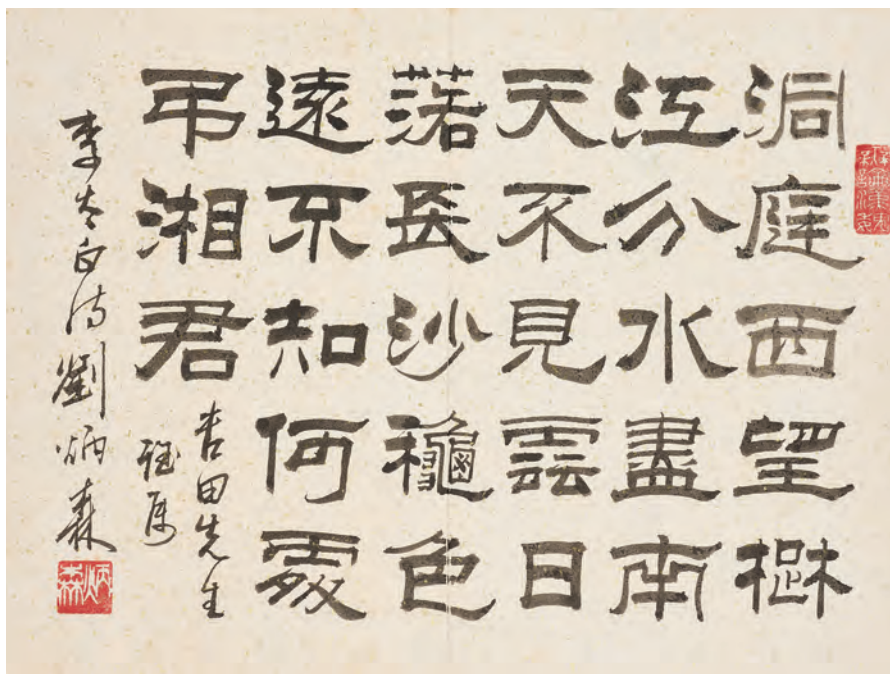 洞庭西望楚
江分水盡南
天不見雲日
落長沙龝色
遠不知何處
弔湘君
吉田先生
雅屬
李太白詩劉炳森
炳森